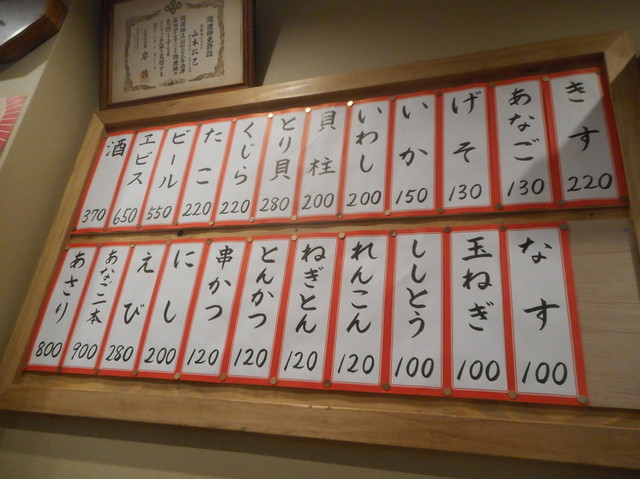 調理師免許証
きす 220
あなご 130
げそ 130
いか 150
いわし 200
貝柱 200
とり貝 280
くじら 220
たこ 220
ビール 550
ヱビス 650
酒 370
なす 100
玉ねぎ 100
ししとう 100
れんこん 120
ねぎとん 120
とんかつ 120
串かつ 120
にし 200
えび 280
あなご二本 900
あさり 800